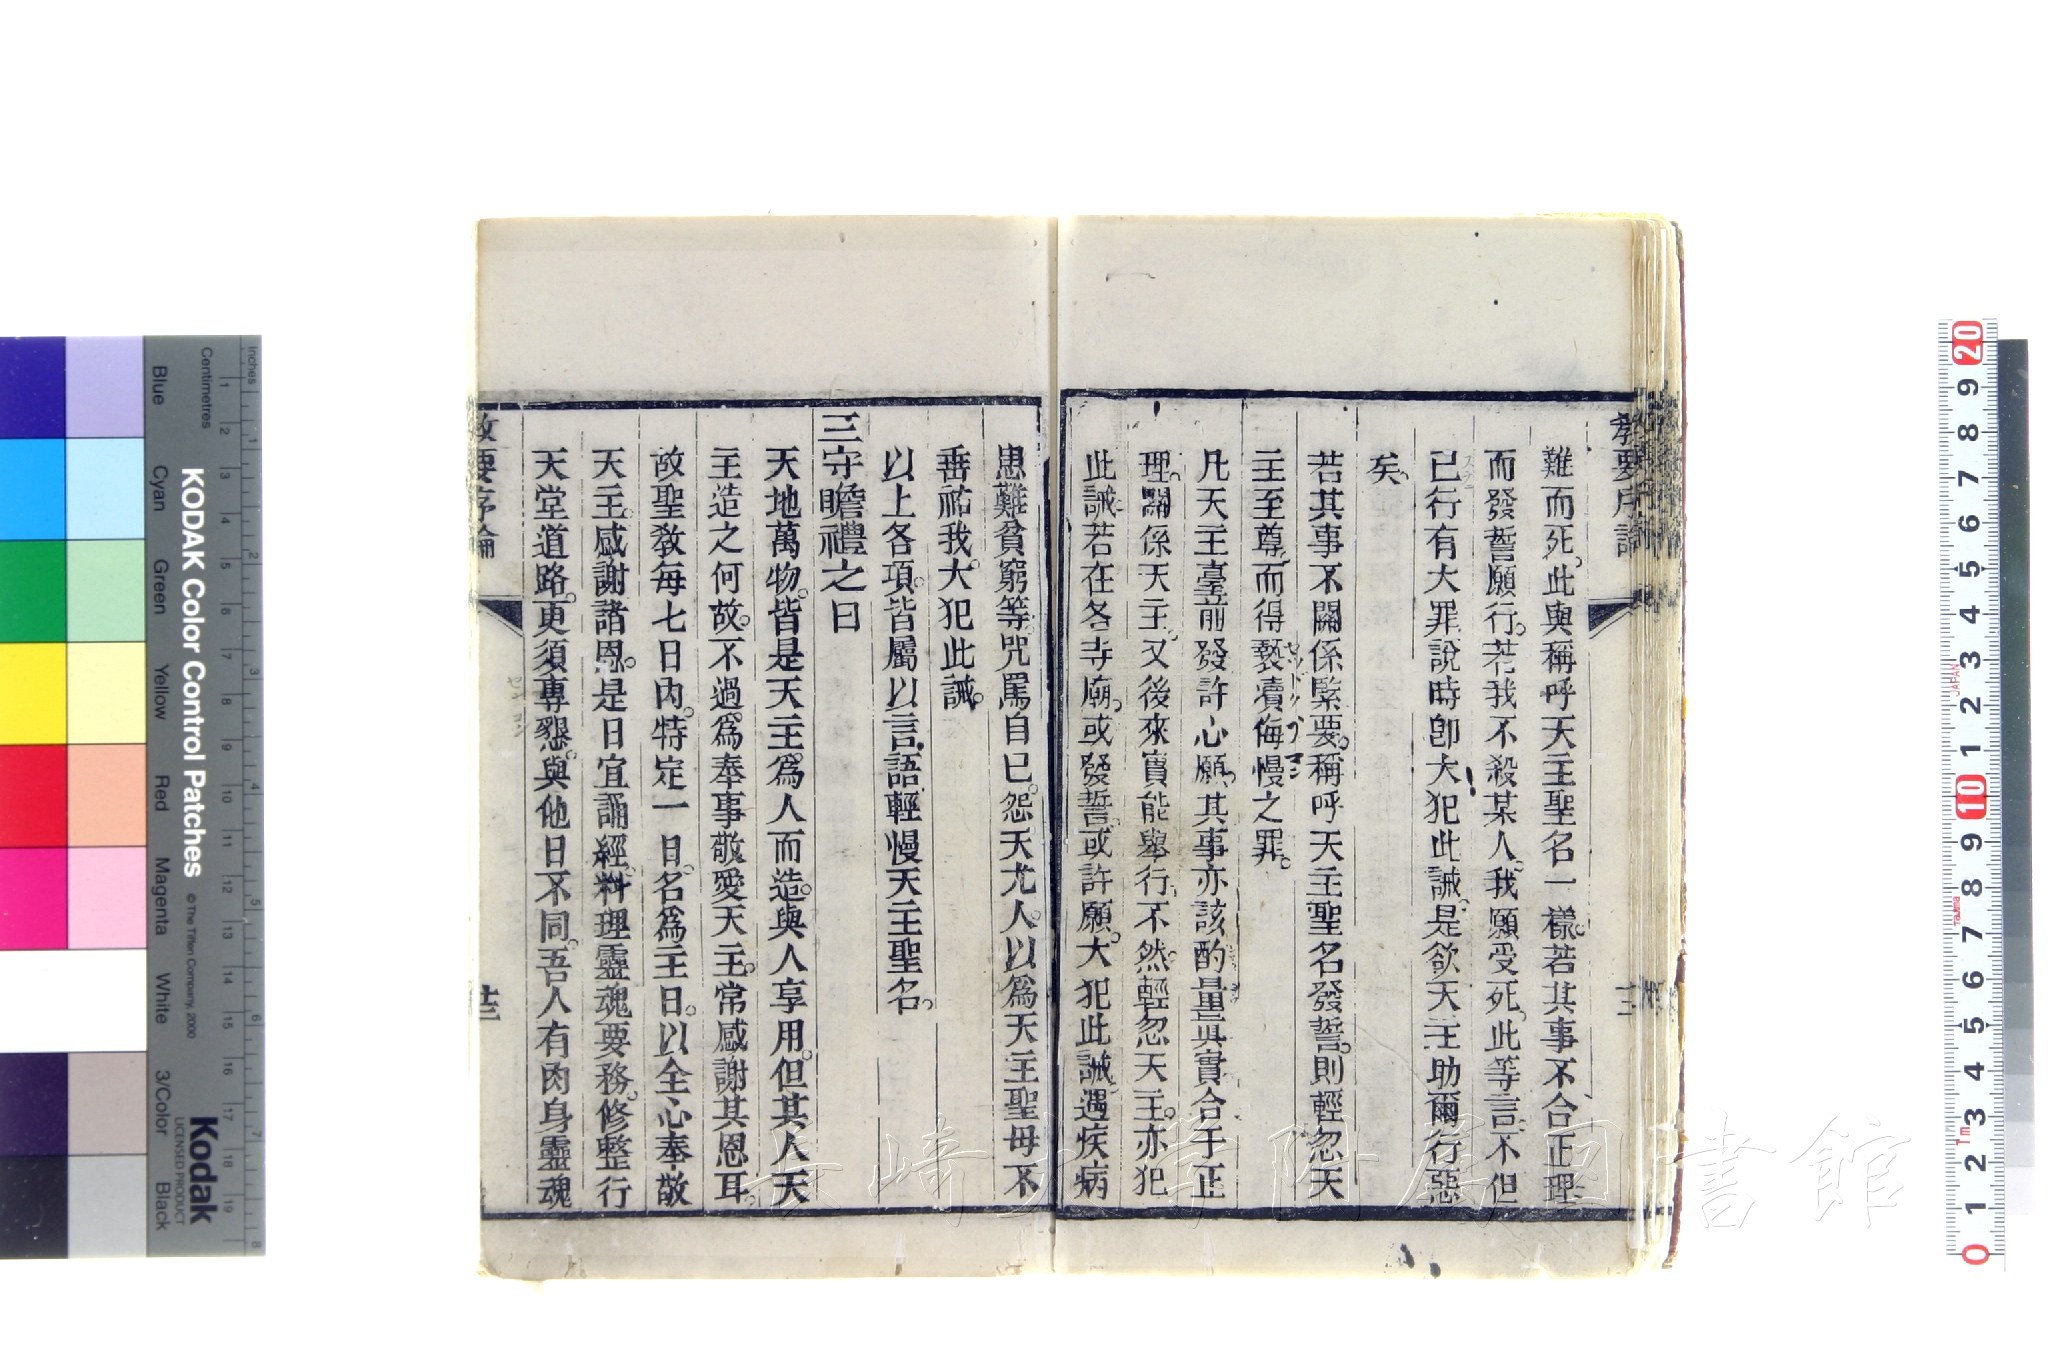 難而死。此與稱呼天主聖名一樣。若其事不合正理
而發誓願行。若我不殺某人。我願受死。此等言。不但
已行有大罪。說時卽大犯此誡。是欲天主助爾行惡
矣。
若其事不關係緊要。稱呼天主聖名發誓。則輕忽天
主至尊。而得褻瀆侮慢之罪。
凡天主臺前發許心願。其事亦該酌量眞實合于正
理。關係天主。又後來實能舉行。不然。輕忽天主。亦犯
此誡。若在各寺廟。或發誓。或許願。大犯此誡。遇疾病
患難貧窮等。咒罵自己。怨天尤人。以爲天主聖母不
垂祐我。大犯此誡。
以上各項。皆屬以言語輕慢天主聖名。
三守瞻禮之日
天地萬物。皆是天主。爲人而造。與人享用。但其人天
主造之何故。不過爲奉事敬愛天主。常感謝其恩耳。
故聖敎每七日內。特定一日。名爲主日。以全心奉敬
天主。感謝諸恩。是日宜誦經。料理靈魂要務。修整行
天堂道路。更須專懇。與他日不同。吾人有肉身靈魂
教要序論
教要序論
十二
長崎大学附属図書館
KODAK Color Control Patches
© The Tiffen Company, 2000
Kodak
LICENSED PRODUCT
Inches
Centimetres
Blue
Cyan
Green
Yellow
Red
Magenta
White
3/Color
Black
1 2 3 4 5 6 7 8
1 2 3 4 5 6 7 8 9 10 11 12 13 14 15 16 17 18 19
20 9 8 7 6 5 4 3 2 1 10 9 8 7 6 5 4 3 2 1 0
JAPAN